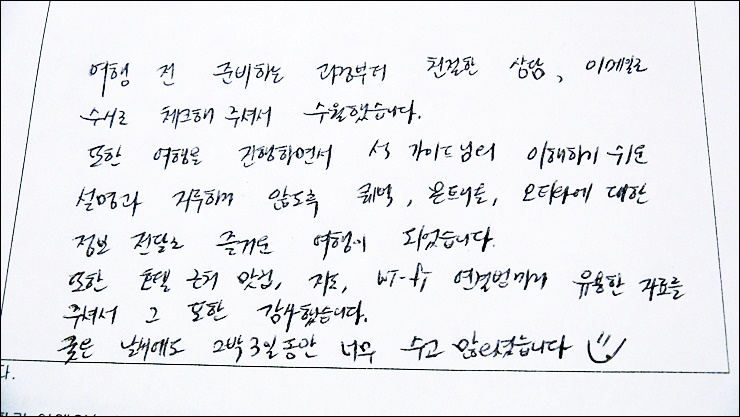 여행 전 준비하는 과정부터 친절한 상담, 이메일로
수시로 체크해 주셔서 수월했습니다.
또한 여행을 진행하면서 석 가이드님의 이해하기 쉬운
설명과 지루하지 않도록 퀘벡, 몬트리올, 오타와에 대한
정보 전달로 즐거운 여행이 되었습니다.
또한 호텔 근처 맛집, 지도, WI-FI 연결법까지 유용한 자료를
주셔서 그 또한 감사했습니다.
궂은 날씨에도 2박3일동안 너무 수고 많으셨습니다
다.